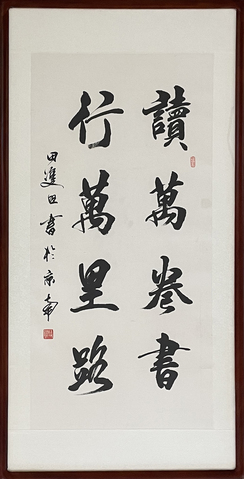 讀萬卷書
行萬里路
田雙田書於京南